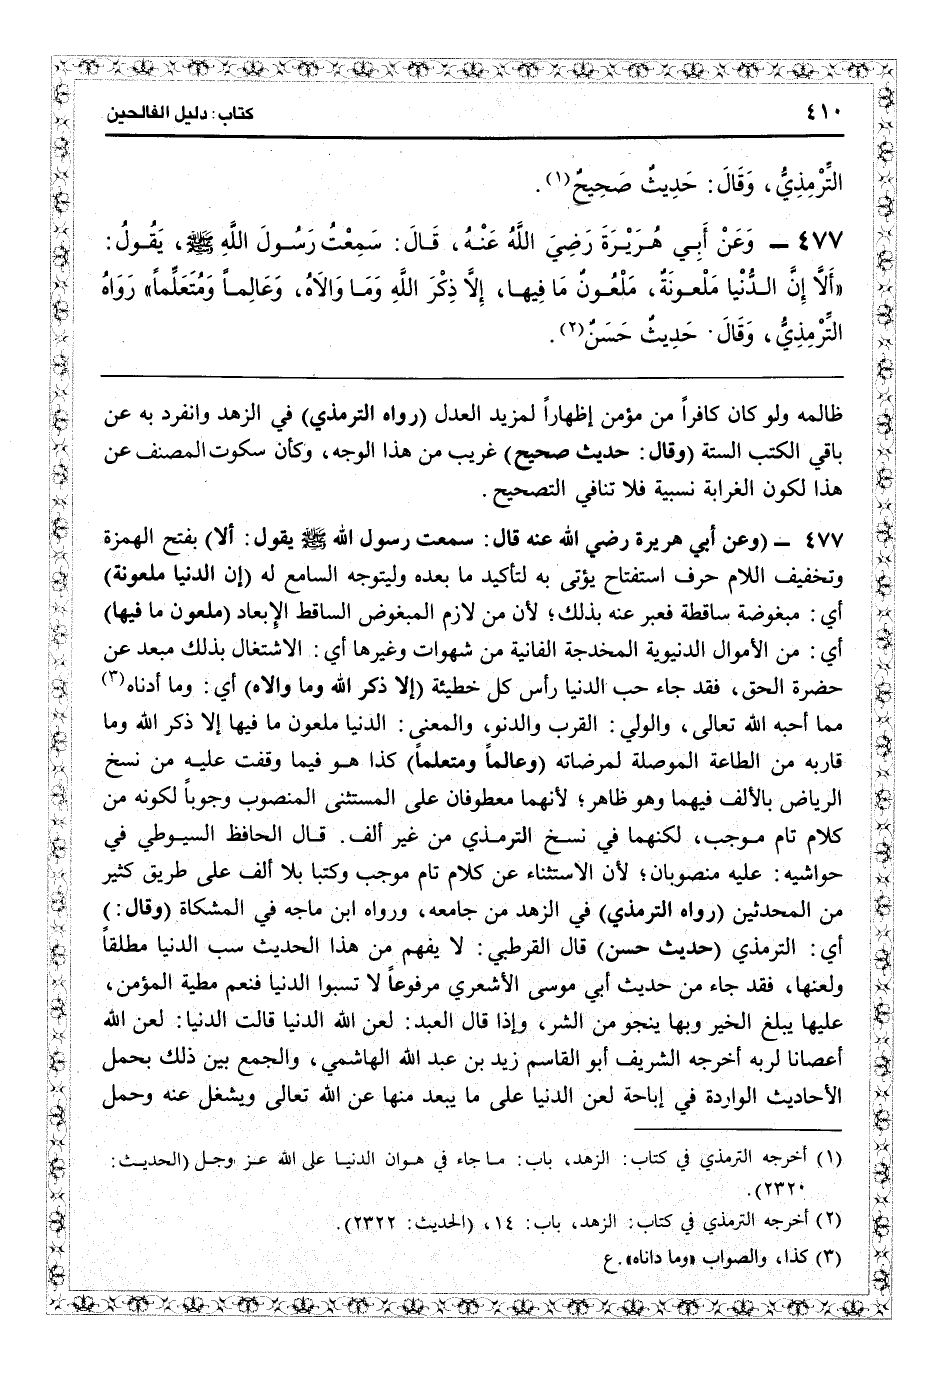 ٤١٠
كتاب: دليل الفالحين
التِّرْمِذِيُّ، وَقَالَ: حَدِيثٌ صَحِيحٌ(١).
٤٧٧ ـ وَعَنْ أَبِي هُرَيْرَةَ رَضِيَ اللَّهُ عَنْهُ، قَالَ: سَمِعْتُ رَسُولَ اللَّهِ ﷺ، يَقُولُ:
«أَلَا إِنَّ الدُّنْيَا مَلْعونَةٌ، مَلْعُونٌ مَا فِيها، إِلَّا ذِكْرَ اللَّهِ وَمَا وَالَاهُ، وَعَالِماً وَمُتَعَلِّماً» رَوَاهُ
التِّرْمِذِيُّ، وَقَالَ: حَدِيثٌ حَسَنٌ(٢).
ظالمه ولو كان كافراً من مؤمن إظهاراً لمزيد العدل (رواه الترمذي) في الزهد وانفرد به عن
باقي الكتب الستة (وقال: حديث صحيح) غريب من هذا الوجه، وكأن سكوت المصنف عن
هذا لكون الغرابة نسبية فلا تنافي التصحيح.
٤٧٧ ـ (وعن أبي هريرة رضي الله عنه قال: سمعت رسول الله ﷺ يقول: ألا) بفتح الهمزة
وتخفيف اللام حرف استفتاح يؤتى به لتأكيد ما بعده وليتوجه السامع له (إن الدنيا ملعونة)
أي: مبغوضة ساقطة فعبر عنه بذلك؛ لأن من لازم المبغوض الساقط الإبعاد (ملعون ما فيها)
أي: من الأموال الدنيوية المخدجة الفانية من شهوات وغيرها أي: الاشتغال بذلك مبعد عن
حضرة الحق، فقد جاء حب الدنيا رأس كل خطيئة (إلا ذكر الله وما والاه) أي: وما أدناه(٣)
مما أحبه الله تعالى، والولي: القرب والدنو، والمعنى: الدنيا ملعون ما فيها إلا ذكر الله وما
قاربه من الطاعة الموصلة لمرضاته (وعالماً ومتعلماً) كذا هو فيما وقفت عليه من نسخ
الرياض بالألف فيهما وهو ظاهر؛ لأنهما معطوفان على المستثنى المنصوب وجوباً لكونه من
كلام تام موجب، لكنهما في نسخ الترمذي من غير ألف. قال الحافظ السيوطي في
حواشيه: عليه منصوبان؛ لأن الاستثناء عن كلام تام موجب وكتبا بلا ألف على طريق كثير
من المحدثين (رواه الترمذي) في الزهد من جامعه، ورواه ابن ماجه في المشكاة (وقال:)
أي: الترمذي (حديث حسن) قال القرطبي: لا يفهم من هذا الحديث سب الدنيا مطلقاً
ولعنها، فقد جاء من حديث أبي موسى الأشعري مرفوعاً لا تسبوا الدنيا فنعم مطية المؤمن،
عليها يبلغ الخير وبها ينجو من الشر، وإذا قال العبد: لعن الله الدنيا قالت الدنيا: لعن الله
أعصانا لربه أخرجه الشريف أبو القاسم زيد بن عبد الله الهاشمي، والجمع بين ذلك بحمل
الأحاديث الواردة في إباحة لعن الدنيا على ما يبعد منها عن الله تعالى ويشغل عنه وحمل
(١) أخرجه الترمذي في كتاب: الزهد، باب: ما جاء في هوان الدنيا على الله عز وجل (الحديث:
٢٣٢٠).
(٢) أخرجه الترمذي في كتاب: الزهد، باب: ١٤، (الحديث: ٢٣٢٢).
(٣) كذا، والصواب «وما داناه». ع